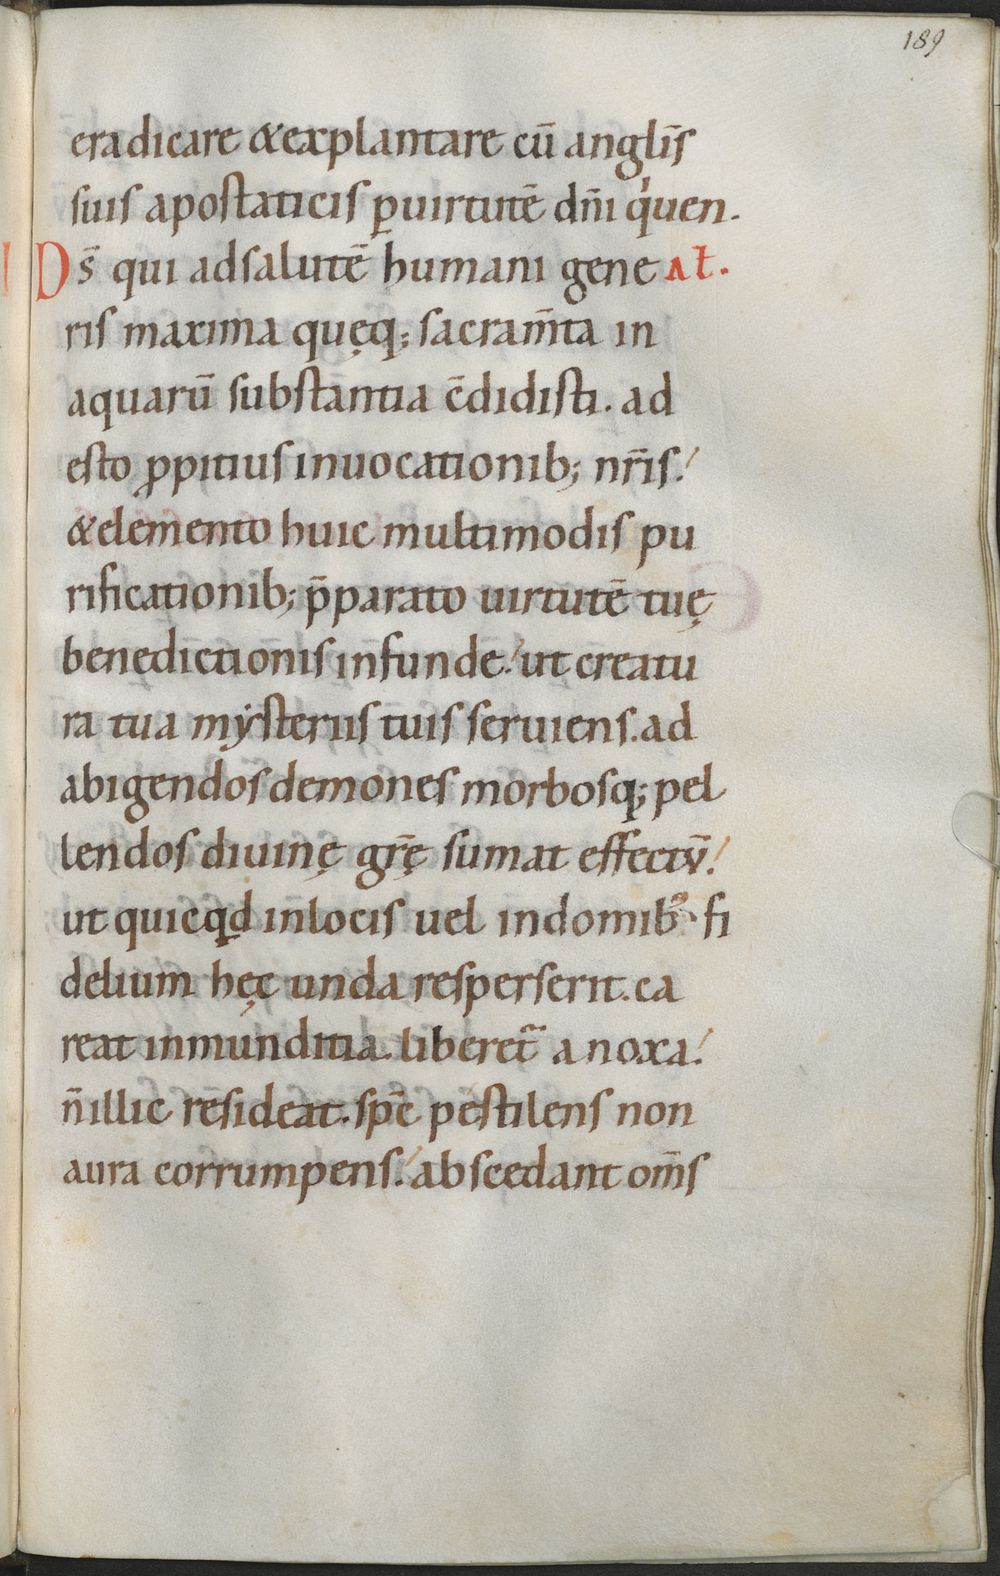 189
eradicare &explantare cū anglīs
suis apostaticis ꝑuirtutē dn̄i q'uen.
Ds̄ qui adsalutē humani gene Ał.
ris maxima quęq; sacram̄ta in
aquarū substantia c̄didisti. ad
esto ꝓpitius inuocationib; nr̄is.'
&elemento huic multimodis pu
rificationib; p̄parato uirtutē tuę
benedictionis infunde.' ut creatu
ra tua mẏsteriis tuis seruiens. ad
abigendos demones morbosq; pel
lendos diuinę gr̄ę sumat effectū.'
ut quicqd inlocis uel indomib; fi
delium hęc unda resperserit. ca
reat inmunditia. liberet᷑ a noxa.'
n̄illic resideat. sp̄c pestilens non
aura corrumpens.' abscedant om̄s